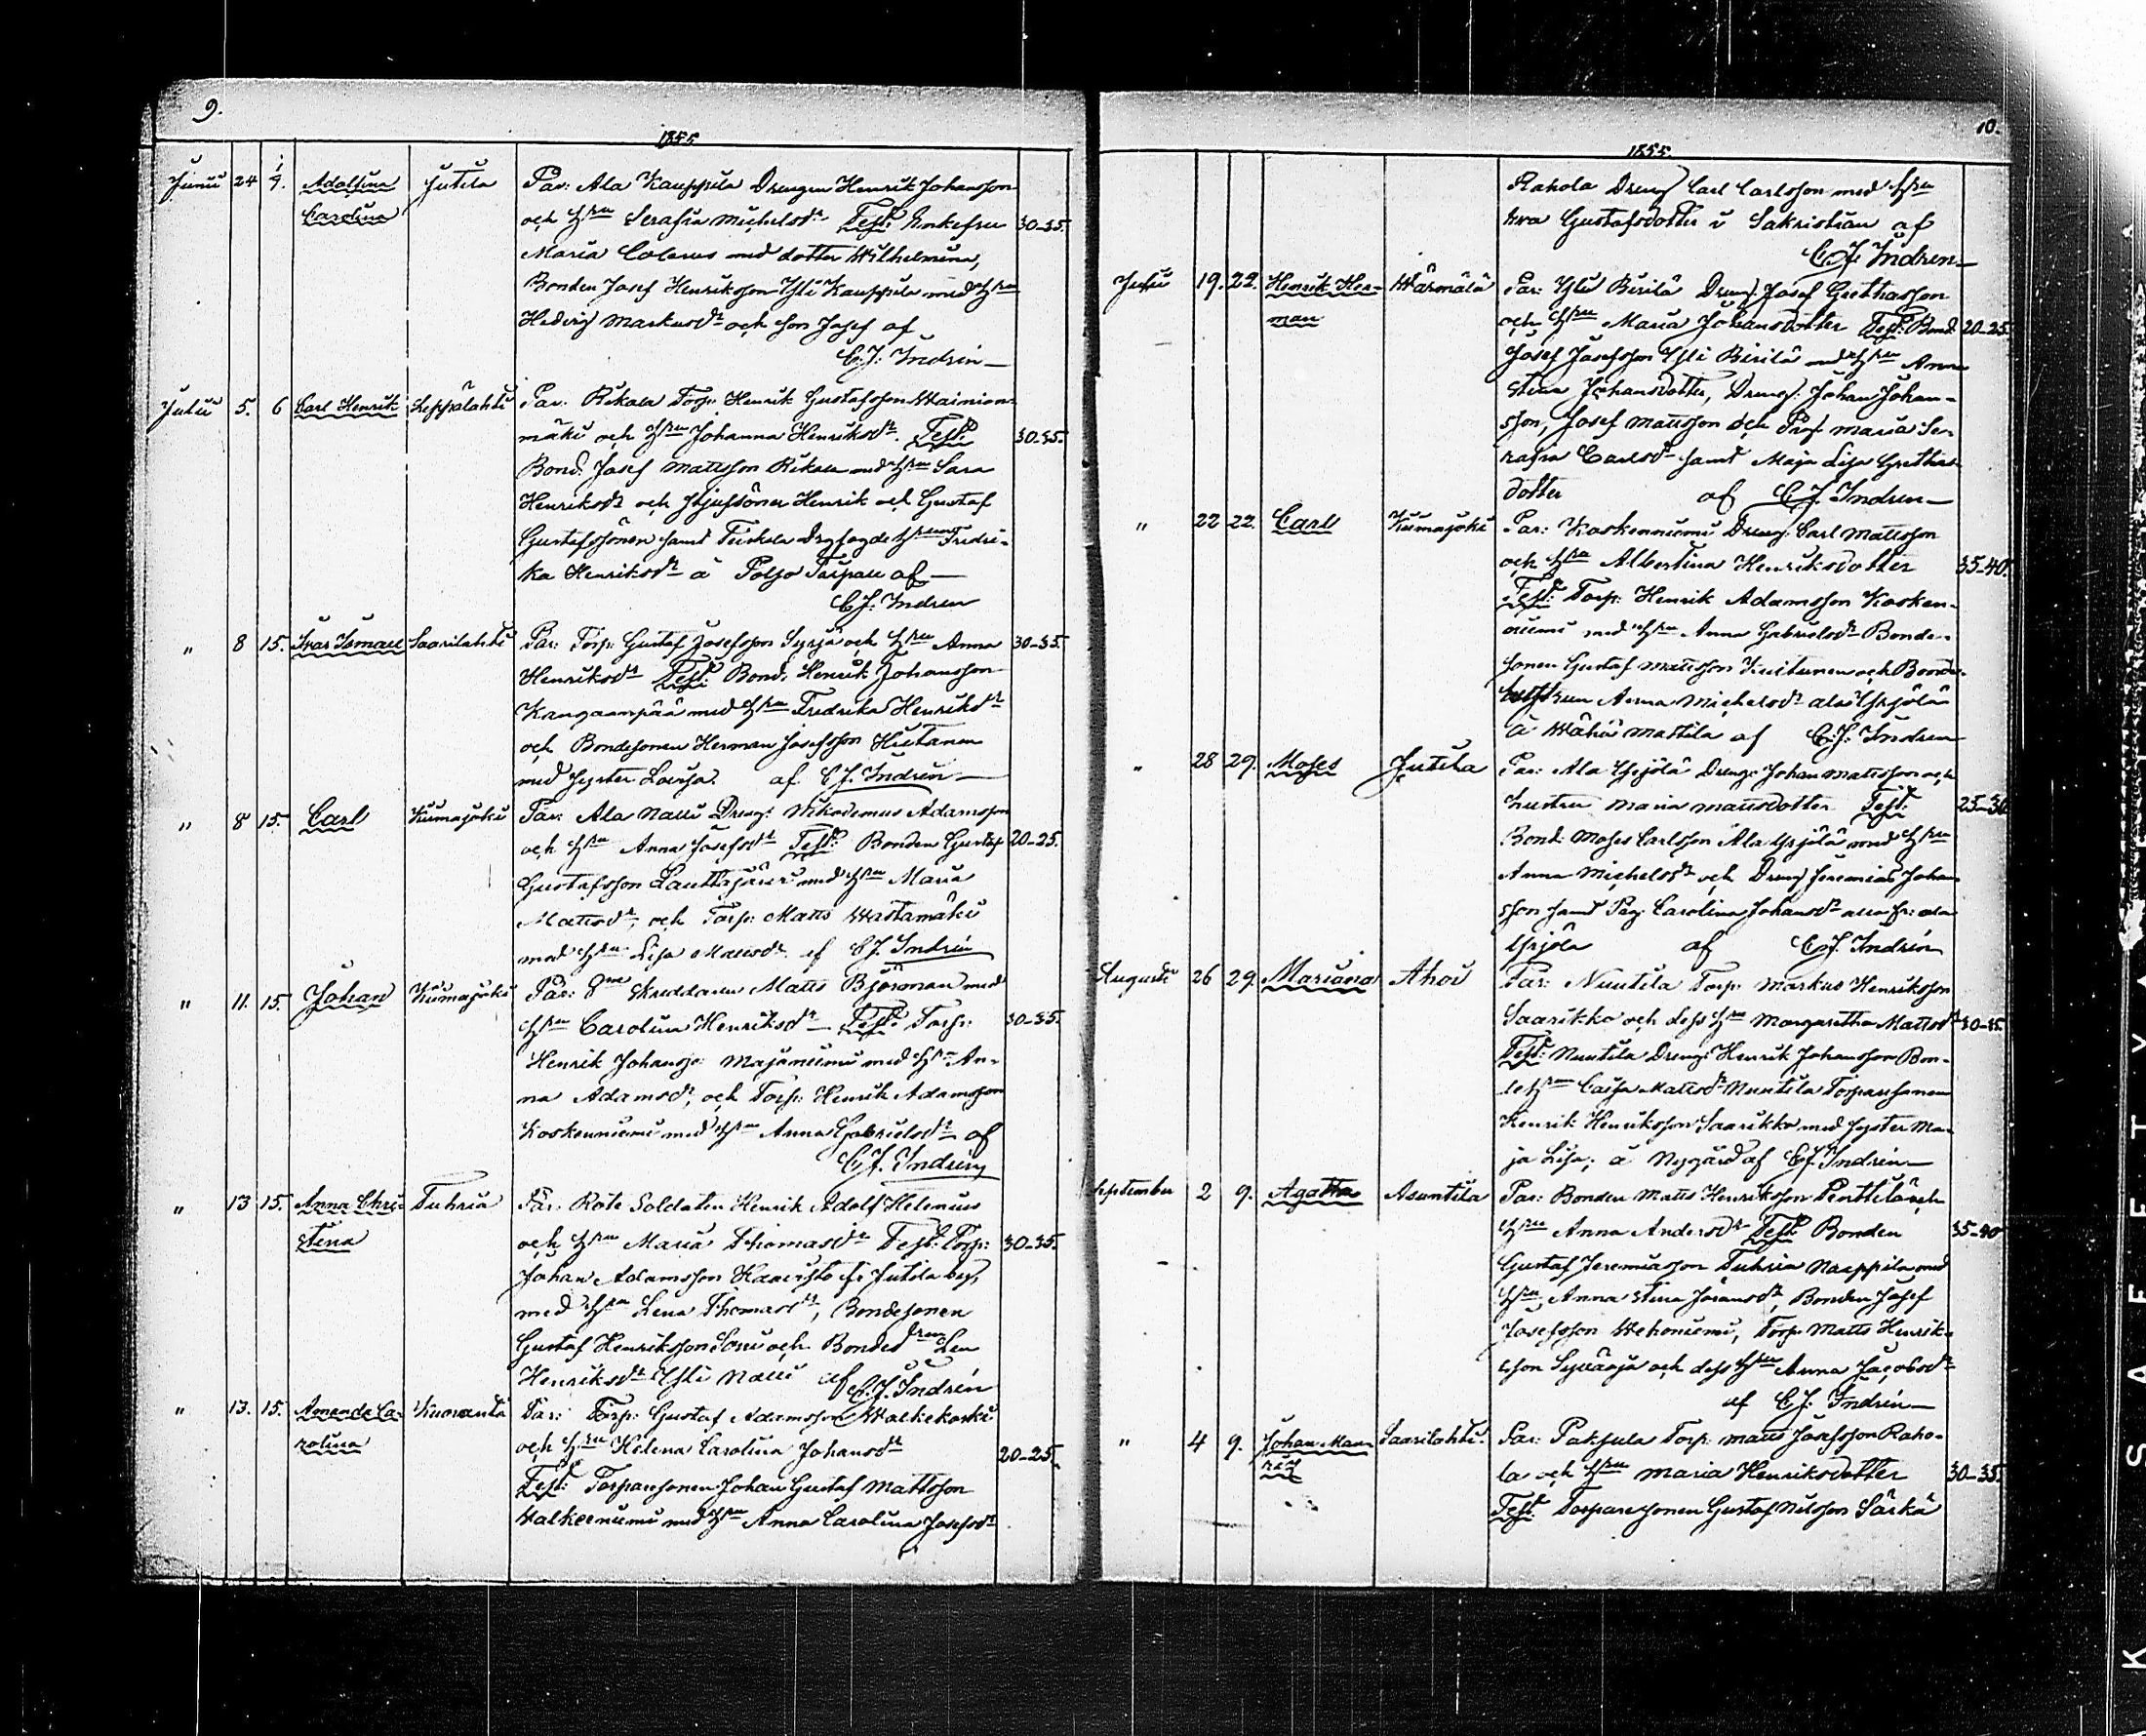 9.
1855.
Junii 24 i 9. Adolfina Jutila Par: Ala Kauppila Drengen Henrik Johansson
Carolina och Hru Serafia Michelsdr Test: Enkefru 30-35.
Maria Colerus med dotter Wilhelmina,
Bonden Josef Henriksson Yli Kauppila med Hru
Hedvig Markusdr och son Josef af
C.J. Indrén
Julii 5. 6 Carl Henrik Leppälahti Par. Rekola Torp: Henrik Gustafsson Wainion-
mäki och Hru Johanna Henriksdr. Test: 30-35.
Bond. Josef Mattsson Rekola med Hru Sara
Henriksdr och styfsöner Henrik och Gustaf
Gustafssöner samt Hru Fredri-
ka Henriksdr å af
C.J. Indrén
" 8 15. Saarilahti Par: Torp: Gustaf Josefsson Syrjä och Hru Anna 30-35.
Henriksdr Test: Bond. Henrik Johansson
Kangaanpää med Hru Fredrika Henriksdr
och Bondesonen Herman Josefsson
med syster Lovisa. af C.J. Indrén
" 8 15. Carl Kiimajoki Par: Ala Nalli Dreng: Nikodemus Adamsson
och Hru Anna Josefsdr Test: Bonden Gustaf 20-25.
Gustafsson Lauttajärvi med Hru Maria
Mattsdr, och Torp: Matts Wastamäki
med Hru Lisa Mattsdr af C.J. Indrén
" 11. 15. Johan Kiimajoki Par: Skreddaren Matts Björman med
Hru Carolina Henriksdr Test: Torp: 30-35.
Henrik Johanss: Majaniemi med Hru An-
na Adamsdr, och Torp: Henrik Adamsson
Koskenniemi med Hru Anna Gabrielsdr af
C.J. Indrén
" 13 15. Anna Chri- Tuhria Par: Rote Soldaten Henrik Adolf Helenius
stina och Hru Maria Thomasdr Test: Torp: 30-35.
Johan Adamsson Haavisto fr Jutila by,
med Hru Lena Thomasdr, Bondesonen
Gustaf Henriksson och Bonded
Henriksdr Yli Nalli af C.J. Indrén
" 13. 15. Amanda Ca- Kuoranta Par: Torp: Gustaf Adamsson Walkekoski
rolina och Hru Helena Carolina Johansdr 20-25.
Test: Torparesonen Johan Gustaf Mattsson
Walkeeniemi med Hru Anna Carolina Josefsdr
10.
1855.
Rahola Dreng Carl Carlsson med Hru
Gustafsdotter i Sakristian af
C.J. Indrén
Julii 19. 22. Henrik Her- Wärmälä Par: Yli Birilä Dreng: Josef Grethasson
man och Hru Maria Johansdotter Test: Bond: 20-25.
Josef Josefsson Yli Birilä med Hru Anna
Stina Johansdotter, Dreng: Johan Johan-
sson, Josef Mattsson och Pig: Maria Se-
rafia Carlsdr samt Maja Lisa Grethas-
dotter af C.J. Indrén
" 22 22. Carl Kiimajoki Par: Koskenniemi Dreng: Carl Mattsson
och Hru Albertina Henriksdotter 35-40.
Test: Torp: Henrik Adamsson Kosken-
niemi med Hru Anna Gabrielsdr Bonde-
sonen Gustaf Mattsson Kuitunen och Bonde-
hustrun Anna Michelsdr Ala Yrjölä
å Wähä Mattila af C.J. Indrén
" 28 29. Moses Jutila Par: Ala Yrjölä Dreng: Johan Mattsson och
hustru Maria Mattsdotter Test: 25-30
Bond: Moses Carlsson Ala Yrjölä med Hru
Anna Michelsdr och Dreng Jeremias Johan-
sson samt Pig: Carolina Johansdr alla fr: Ala
Yrjölä af C.J. Indrén
Augusti 26 29. Mariana Ahoi Par: Nuutila Torp: Markus Henriksson
Saarikko och dess Hru Margaretha Mattsdr 30-35.
Test: Nuutila Dreng: Henrik Johansson Bon-
deHru Caisa Mattsdr Nuutila Torparesonen
Henrik Henriksson Saarikko med syster Ma-
ja Lisa; å Nygård af C.J. Indrén
September 2 9. Agatha Asuntila Par: Bonden Matts Henriksson Penttilä och
Hru Anna Andersdr Test: Bonden 35-40
Gustaf Jeremiasson Tuhria Naappila med
Hru Anna Stina Johansdr, Bonden Josef
Josefsson Wehoniemi, Torp: Matts Henrik-
sson Syvänoja och dess Hru Anna Jacobsdr
af C.J. Indrén
" 4 9. Johan Man- Saarilahti. Par: Paksula Torp: Matts Josefsson Raho-
la och Hru Maria Henriksdotter 30-35.
Test: Torparesonen Gustaf Nilsson Särkä
K SAFETY A